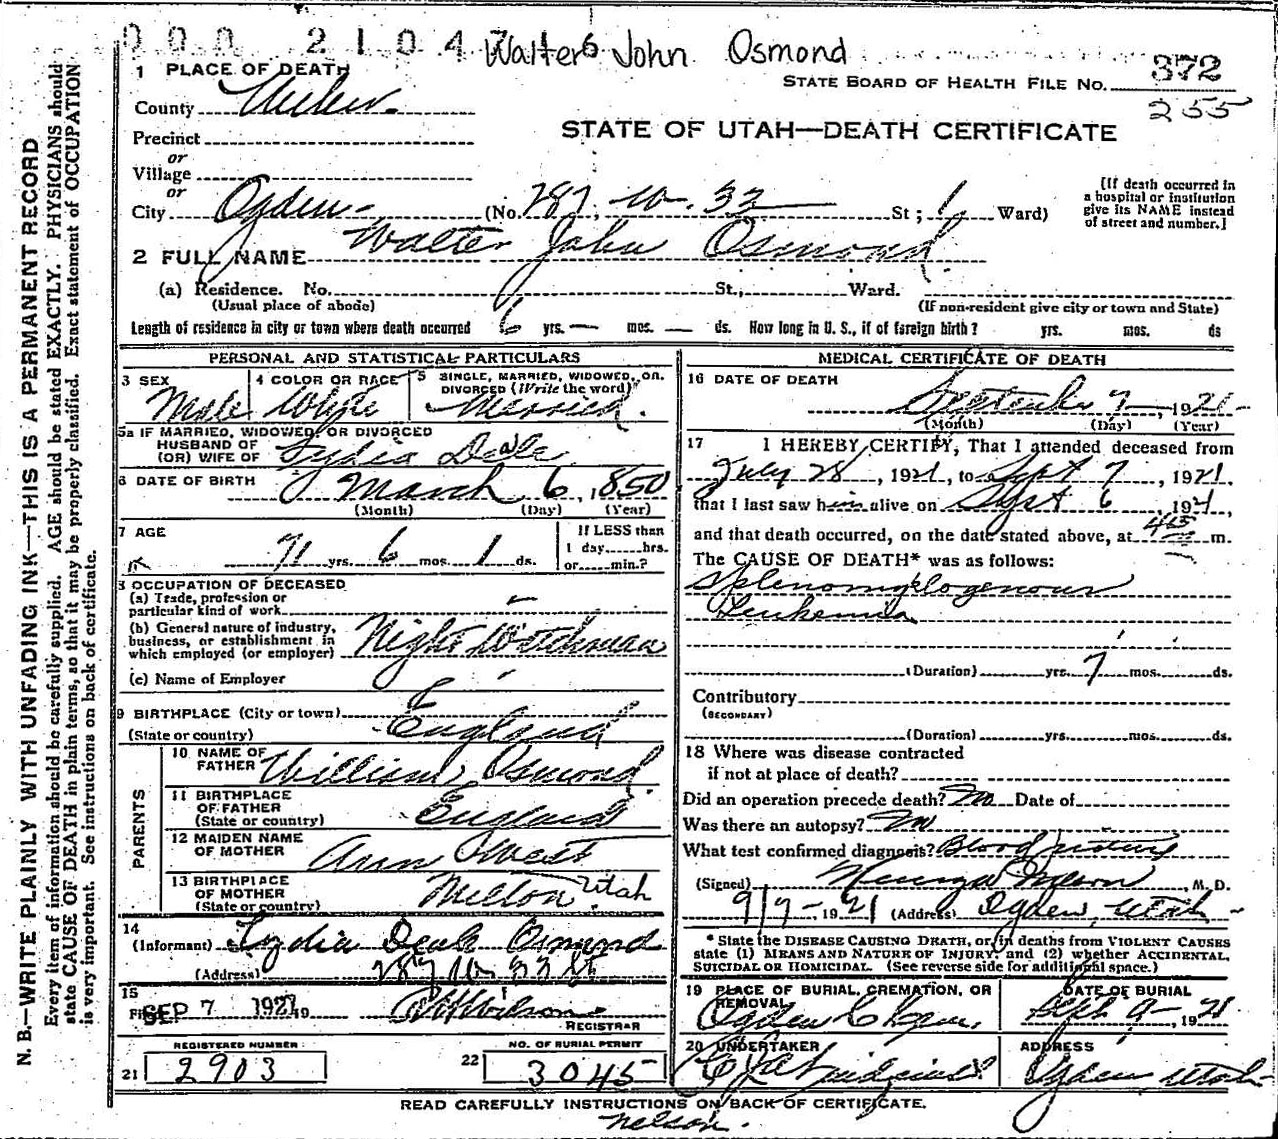 000 2104
Walter John Osmond
STATE BOARD OF HEALTH FILE NO. 372
255
STATE OF UTAH—DEATH CERTIFICATE
1 PLACE OF DEATH
County Weber
Precinct
or
Village
or
City Ogden (No. 287, W. 33 St; 1 Ward)
[If death occurred in
a hospital or institution
give its NAME instead
of street and number.]
2 FULL NAME Walter John Osmond
(a) Residence. No. St., Ward.
(Usual place of abode) (If non-resident give city or town and State)
Length of residence in city or town where death occurred 6 yrs. — mos. — ds. How long in U. S., if of foreign birth? yrs. mos. ds
PERSONAL AND STATISTICAL PARTICULARS
3 SEX Male
4 COLOR OR RACE White
5 SINGLE, MARRIED, WIDOWED, OR
DIVORCED (Write the word) Married.
5a IF MARRIED, WIDOWED, OR DIVORCED
HUSBAND OF
(OR) WIFE OF Lydia Deale
6 DATE OF BIRTH March 6, 1850
(Month) (Day) (Year)
7 AGE
71 yrs. 6 mos. 1 ds.
If LESS than
1 day,......hrs.
or......min.?
8 OCCUPATION OF DECEASED
(a) Trade, profession or
particular kind of work
(b) General nature of industry,
business, or establishment in
which employed (or employer) Night Watchman
(c) Name of Employer
9 BIRTHPLACE (City or town)
(State or country) England
PARENTS
10 NAME OF
FATHER William Osmond.
11 BIRTHPLACE
OF FATHER
(State or country) England
12 MAIDEN NAME
OF MOTHER Ann West
13 BIRTHPLACE
OF MOTHER
(State or country) Milton Utah
14
(Informant) Lydia Deale Osmond
(Address) 287 W. 33 St
15
SEP 7 1921 19
REGISTRAR
REGISTERED NUMBER
21 2903
NO. OF BURIAL PERMIT
22 3045
MEDICAL CERTIFICATE OF DEATH
16 DATE OF DEATH
September 7, 1921
(Month) (Day) (Year)
17 I HEREBY CERTIFY, That I attended deceased from
July 28, 1921, to Sept 7, 1921.
that I last saw him alive on Sept 6, 1921,
and that death occurred, on the date stated above, at 4 m.
The CAUSE OF DEATH* was as follows:
Splenomyelogenous
Leukemia
(Duration) yrs. 7 mos. ds.
Contributory
(SECONDARY)
(Duration) yrs. mos. ds.
18 Where was disease contracted
if not at place of death?
Did an operation precede death? No Date of
Was there an autopsy? No
What test confirmed diagnosis? Blood picture
(Signed) M. D.
9/7 - 1921 (Address) Ogden, Utah
* State the DISEASE CAUSING DEATH, or, in deaths from VIOLENT CAUSES
state (1) MEANS AND NATURE OF INJURY; and (2) whether ACCIDENTAL,
SUICIDAL OR HOMICIDAL. (See reverse side for additional space.)
19 PLACE OF BURIAL, CREMATION, OR
REMOVAL
Ogden
DATE OF BURIAL
Sept 9 - 1921
20 UNDERTAKER
ADDRESS
Ogden, Utah
READ CAREFULLY INSTRUCTIONS ON BACK OF CERTIFICATE.
Nelson.
N. B.—WRITE PLAINLY WITH UNFADING INK—THIS IS A PERMANENT RECORD
Every item of information should be carefully supplied. AGE should be stated EXACTLY. PHYSICIANS should
state CAUSE OF DEATH in plain terms, so that it may be properly classified. Exact statement of OCCUPATION
is very important. See instructions on back of certificate.